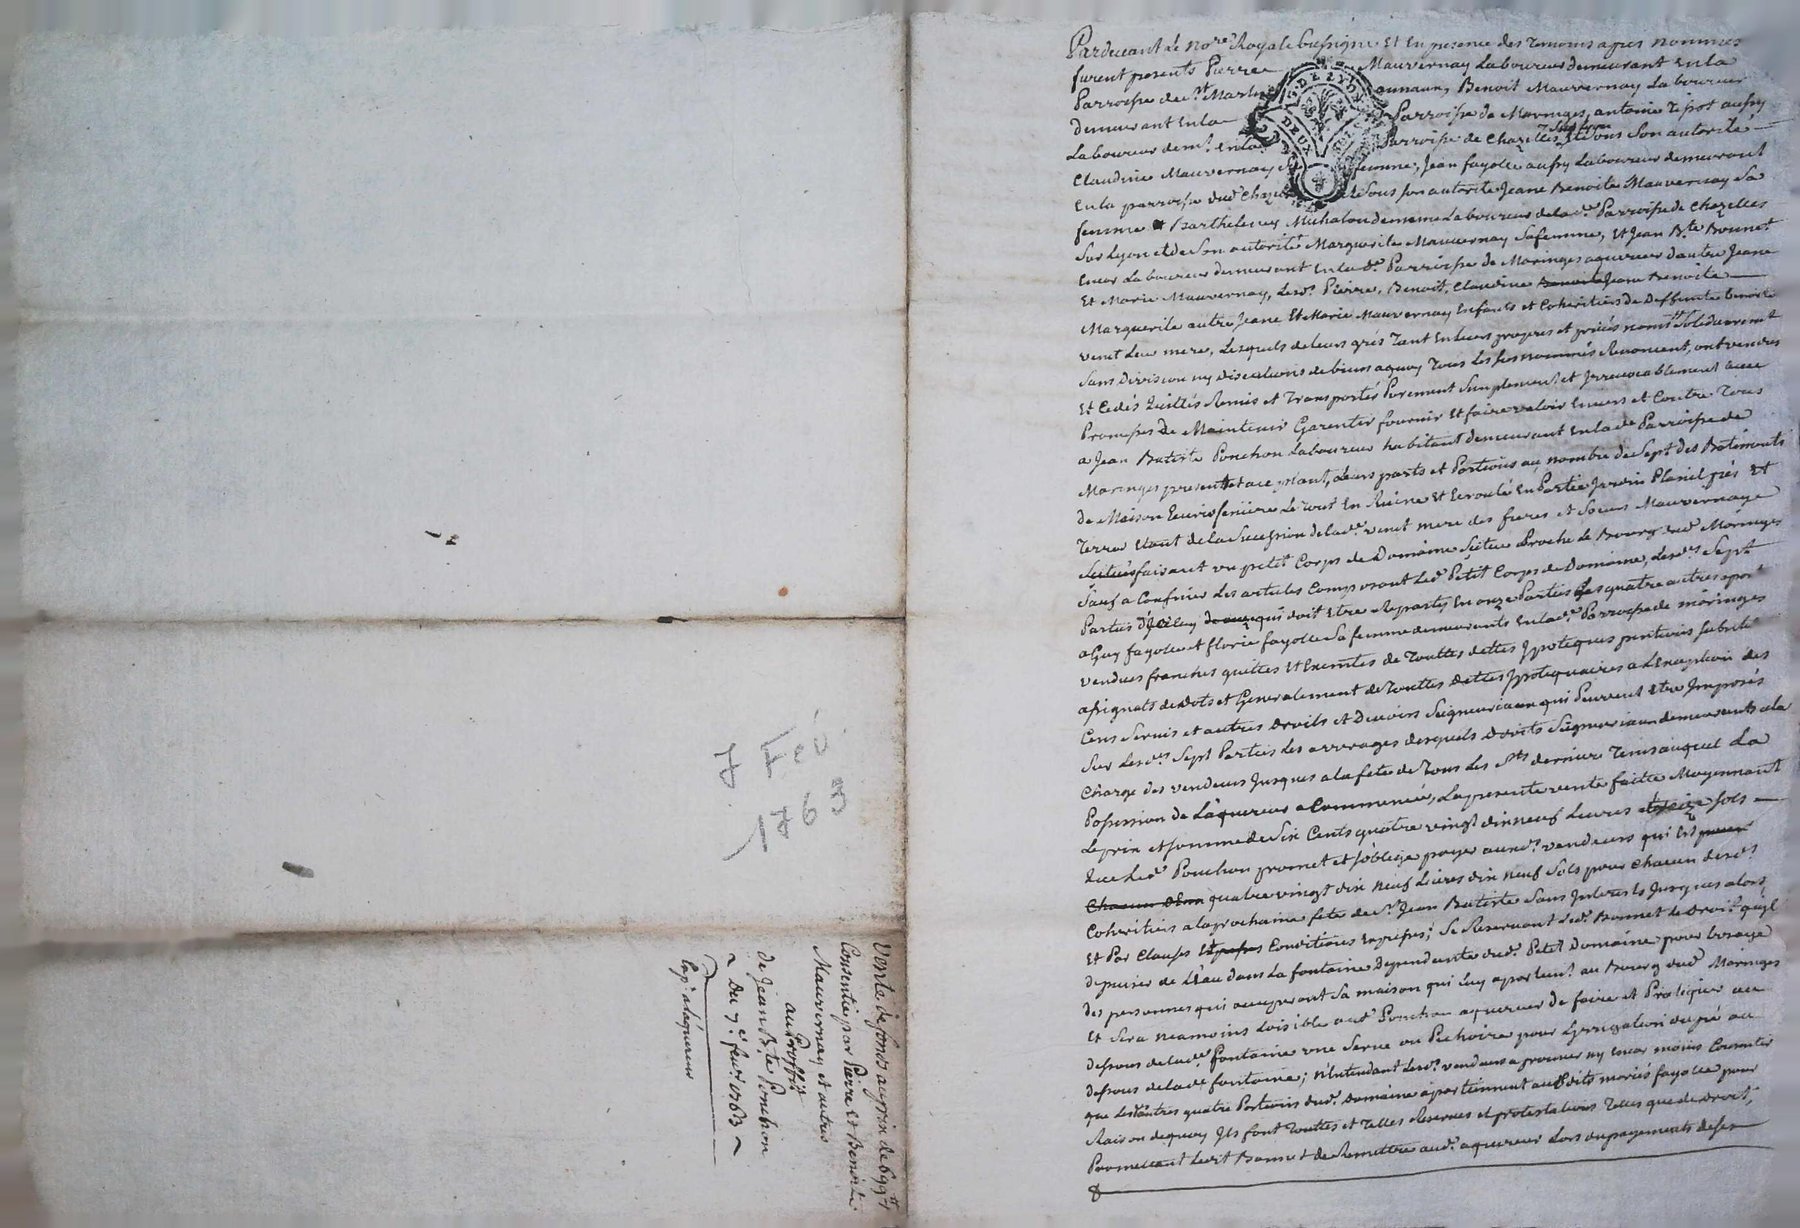 Pardevant Le No.re Royale Soussigné Et En presence des Temoins apres nommés
furent presents Pierre Mauvernay Laboureur demeurant En la
Parroisse de S.t Martin annaux, Benoit Mauvernay Laboureur
demeurant En la Parroisse de Maringes, antoine aussy
Laboureur dem.t En la Parroisse de Chazelles Sous Son autorité
Claudine Mauvernay Sa femme, Jean fayolle aussy Laboureur demeurant
En la parroisse dud. Chazelles Sous son autorité Jeane Benoite Mauvernay Sa
femme Et Barthelemy Michalon de meme Laboureur de lad.e Parroisse de Chazelles
Sur Lyon et de Son autorité Marguerite Mauvernay Sa femme, Et Jean B.te Bonnet
Encor Laboureur demeurant En lad.e Parroisse de Maringes aquereur d'autre Jeane
Et Marie Mauvernay, Lesd.s Pierre, Benoit, Claudine Jeane Benoite
Marguerite autre Jeane Et Marie Mauvernay Enfants et Coheritiers de Deffunte benoite
venet Leur mere, Lesquels de leurs grés Tant En leurs propres et privés noms Solidairement
Sans Division ny discutions de biens aquoy Tous Les Susnommés Renoncent, ont vendus
Et Cedés Quittés Remis et Transportés Purement Simplement et Irrevocablement avec
Promesses De Maintenir Garentir fournir Et faire valoir Envers et Contre Tous
a Jean Batiste Ponchon Laboureur habitant demeurant En lad.e Parroisse de
Maringes present et aceptant, Leurs parts et Portions au nombre de Sept des Batiments
de Maison Ecurie feniere Le Tout En Ruine Et Ecroulé En Partie Jardin Planil prés Et
Terres Etant de la Sucession de lad.e venet mere des freres et Soeurs Mauvernaye
faisant un petit Corps de Domaine Scitué Proche Le Bourg dud. Maringes
Sauf a Confiner Les articles Composant Led. Petit Corps de Domaine, Lesd.es Sept
Parties d'Iceluy qui doit Etre Reparty En onze Parties Les quatre autres apar.t
a Guy fayolle et florie fayolle Sa femme demeurants En lad.e Parroisse de maringes
vendues franches quittes Et Exemtes de Touttes dettes Ypoteques pentions Substit.
assignats de Dots et Generalement de Touttes Dettes Ypotequaires a L'Exception des
Cens Servis et autres Droits et Devoirs Seigneuriaux qui Peuvent Etre Imposés
Sur Lesd.es Sept Parties Les arrerages desquels Droits Seigneuriaux demeurants ala
Charge des vendeurs Jusques ala fete de Tous Les S.ts dernier Tems auquel La
Possession de L'aquereur a Commencée, La presente vente faitte Moyennant
Le prix et Somme de Six Cents quatre vingt dix neuf Livres Sols
Que Led. Ponchon promet et S'oblige payer auxd.s vendeurs qui Est
quatre vingt dix neuf Livres dix neuf Sols pour Chacun desd.s
Coheritiers ala prochaine fete de S.t Jean Batiste Sans Interets Jusques alors,
Et Par Clauses Conditions Expresses; Se Reservant Led. Bonnet Le Droit quil
de puiser de L'Eau dans La fontaine Dependante dud. Petit Domaine pour L'usage
des personnes qui occuperont Sa maison qui Luy apartient au Bourg dud. Maringes
Et Sera neamoins Loisible aud. Ponchon aquereur de faire et Pratiquer au
dessous de lad.e Fontaine une Serve ou Pechoire pour L'yrrigation du pré au
dessous de lad.e fontaine; n'Entendant Lesd. vendeurs aprouver ny Encor moins Consentir
que Les autres quatre Portions dud. Domaine apartiennent auxdits mariés fayolle pour
Raison de quoy Ils font Touttes et Telles Reserves et protestations Telles que de Droit,
Promettant Ledit Bonnet de Remettre aud. aquereur Lors du payements de Ses
7 Fév.
1763
Vente de fonds au prix de 699 tt
Consentie par Pierre Et Benoite
Mauvernay et autres
au Proffit
de Jean B.te Ponchon
Du 7.e fev.r 1763
Exp.n a laquereur